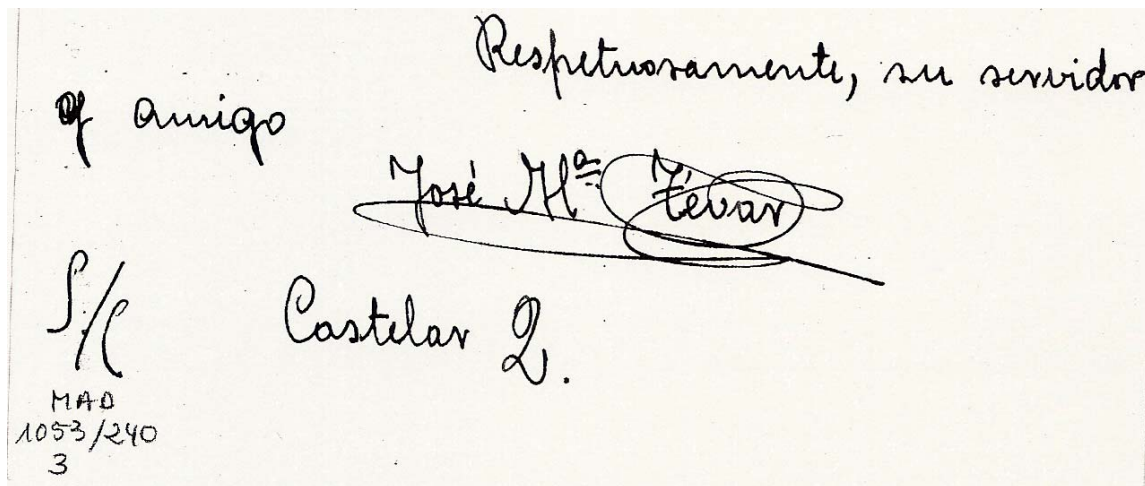 Respetuosamente, su servidor
y amigo
José Mª Tévar
S/C Castelar 2.
MAD
1053/240
3